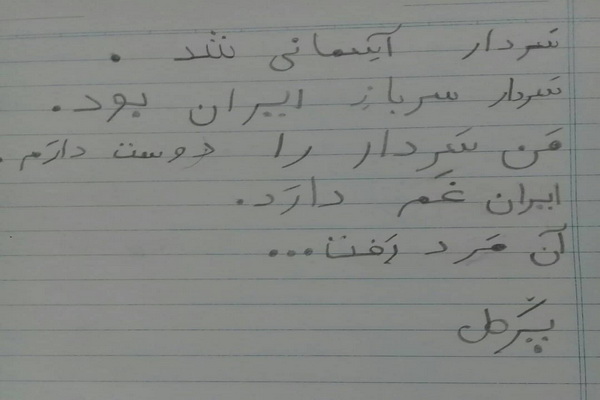 سردار آسمانی شد .
سردار سرباز ایران بود.
مَن سَردار را دوست دارَم.
ایران غَم دارَد.
آن مَرد رَفت...